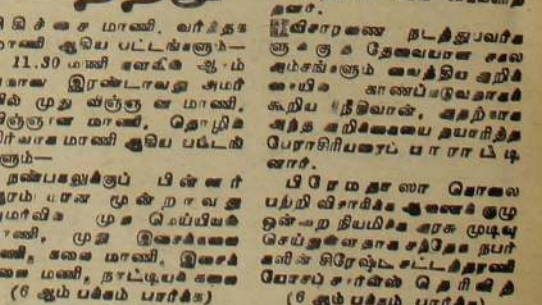 மாணி, வர்த்தக
மாணி ஆகிய பட்டங்களும்—
11.30 மணி
இரண்டாவது அமர்
முது விஞ்ஞான மாணி,
விஞ்ஞான மாணி, தொழில்
மாணி ஆகிய பட்டங்
களும்—
நண்பகலுக்குப் பின்னர்
மூன்றாவது
முது மெய்யியல்
முது இசைக்கலை
கலை மாணி, இசைக்
மணி, நாட்டியக் கலை
(6 ஆம் பக்கம் பார்க்க)
விசாரணை நடத்துபவர்க
ளுக்கு தேவையான சகல
அம்சங்களும் வைத்திய அறிக்
கையில் காணப்படுவதாகக்
கூறிய நீதிவான், அதற்காக
அந்த அறிக்கையை தயாரித்த
பேராசிரியரைப் பாராட்டி
னார்.
பிரேமதாஸா கொலை
பற்றி விசாரிக்க ஆணைக் குழு
ஒன்றை நியமிக்க அரசு முடிவு
செய்துள்ளதாக சந்தேக நபர்
களின் சிரேஷ்ட சட்டத்தரணி
சார்ள்ஸ் தெரிவித்
(6 ஆம் பக்கம் பார்க்க)